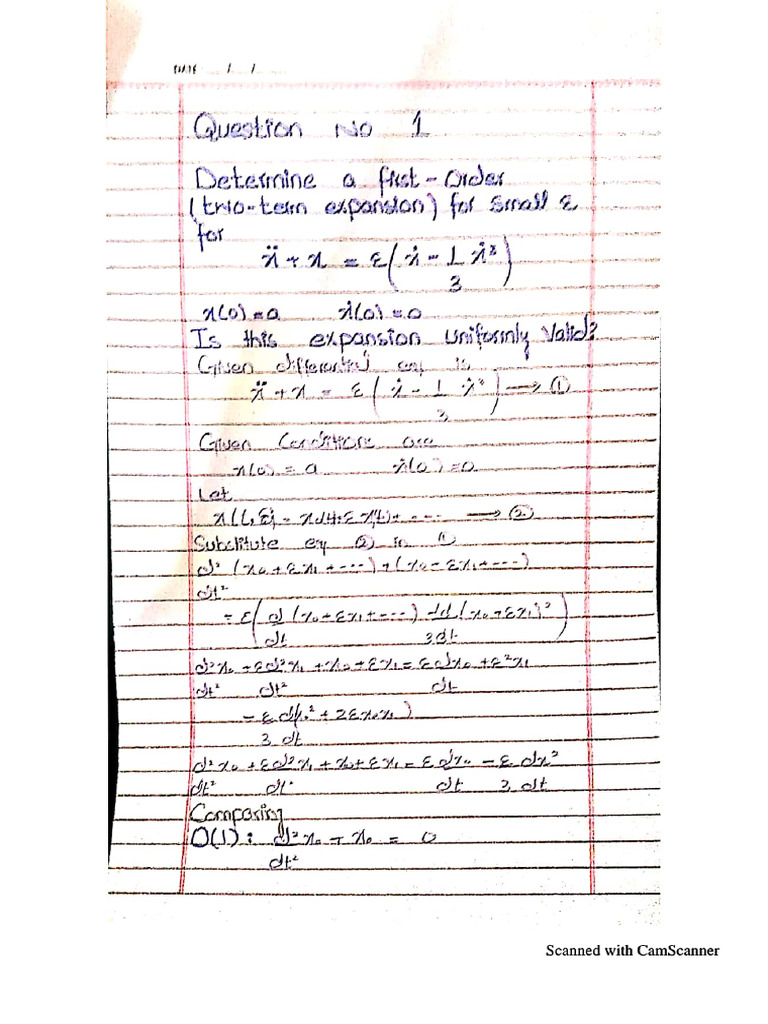 DATE / /
Question No 1
Determine a first-order
(two-term expansion) for small ε
for
ẍ + x = ε(ẋ - 1/3 ẋ³)
x(0)=a ẋ(0)=0
Is this expansion uniformly valid?
Given differential eq is
ẍ + x = ε(ẋ - 1/3 ẋ³) → ①
Given Conditions are
x(0) = a ẋ(0)=0
Let
→ ②
Substitute eq ② in ①
d²/dt² (x₀ + εx₁ + ---) + (x₀ - εx₁ + ---)
= ε(d/dt (x₀+εx₁+---) -
d²x₀/dt² + εd²x₁/dt² + x₀ + εx₁ = εdx₀/dt + ε²x₁
+ 2εx₀x₁)
d²x₀/dt² + εd²x₁/dt² + x₀ + εx₁ = ε dx₀/dt - ε/3 dx²/dt
Comparing
O(1): d²x₀/dt² + x₀ = 0
Scanned with CamScanner